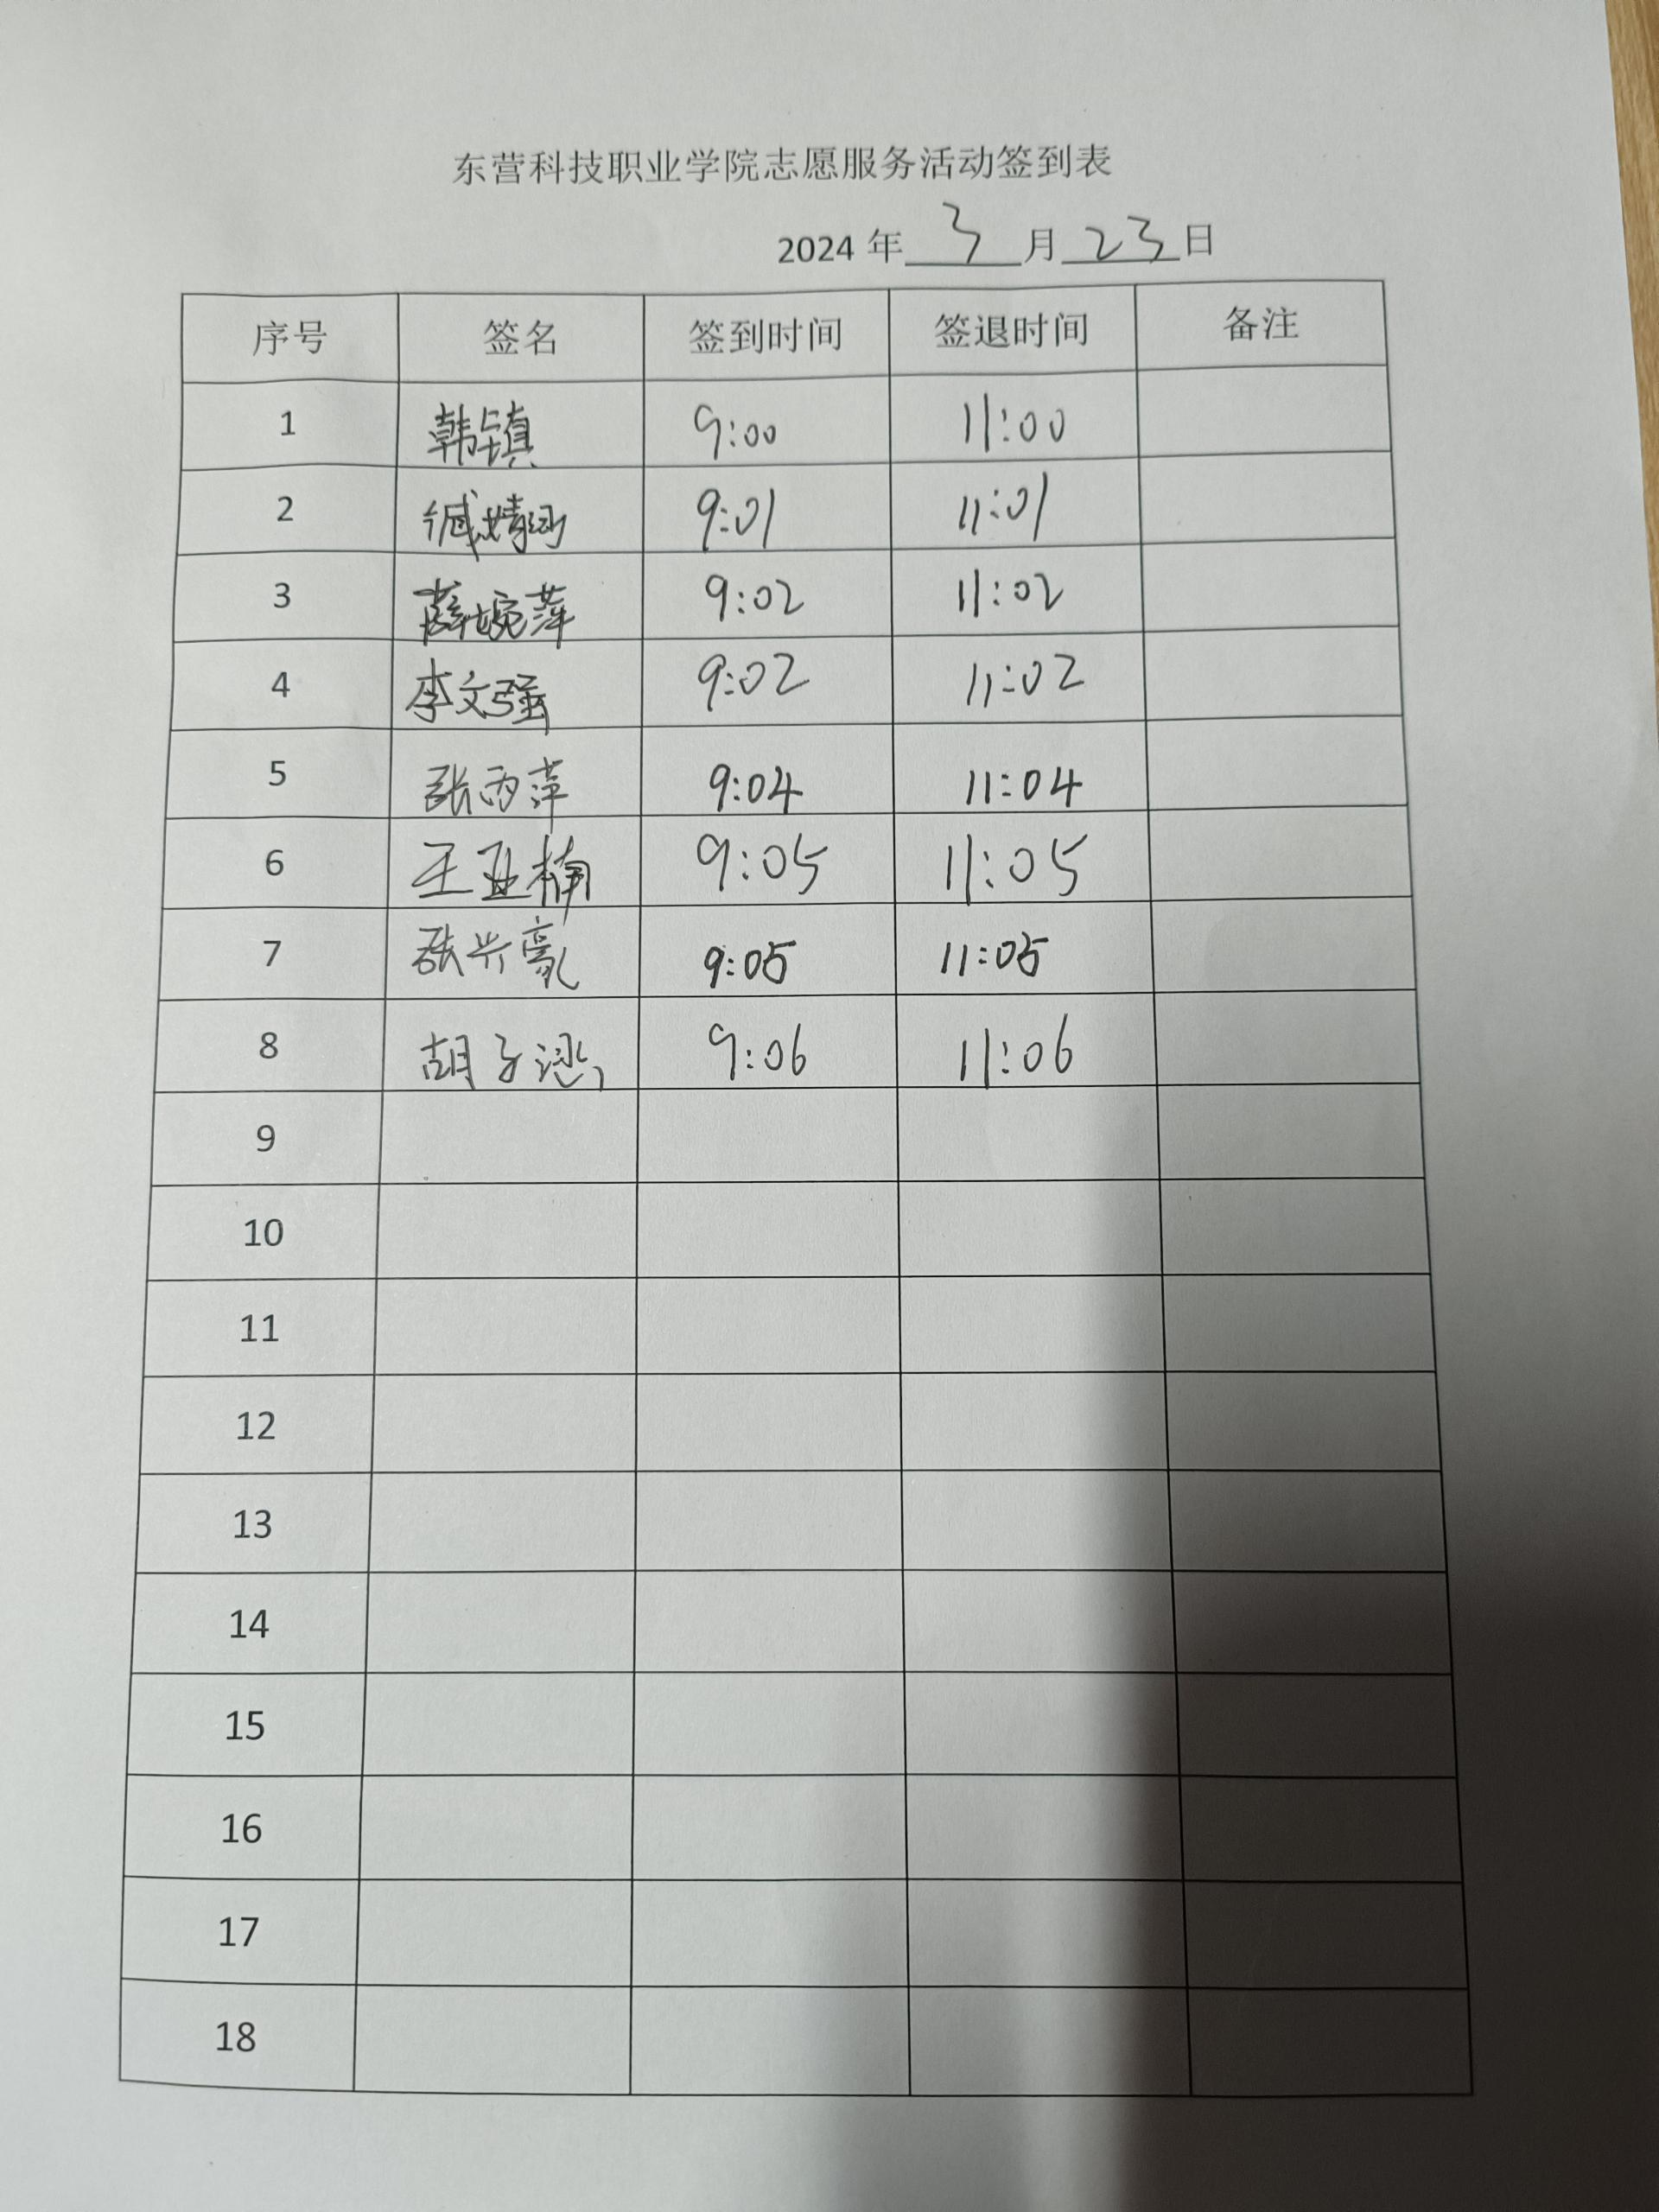 东营科技职业学院志愿服务活动签到表
2024 年 3 月 23 日
序号 签名 签到时间 签退时间 备注
1 韩镇 9:00 11:00
2 9:01 11:01
3 薛婉萍 9:02 11:02
4 李文强 9:02 11:02
5 张雨萍 9:04 11:04
6 王亚楠 9:05 11:05
7 张兴豪 9:05 11:05
8 胡子 9:06 11:06
9
10
11
12
13
14
15
16
17
18